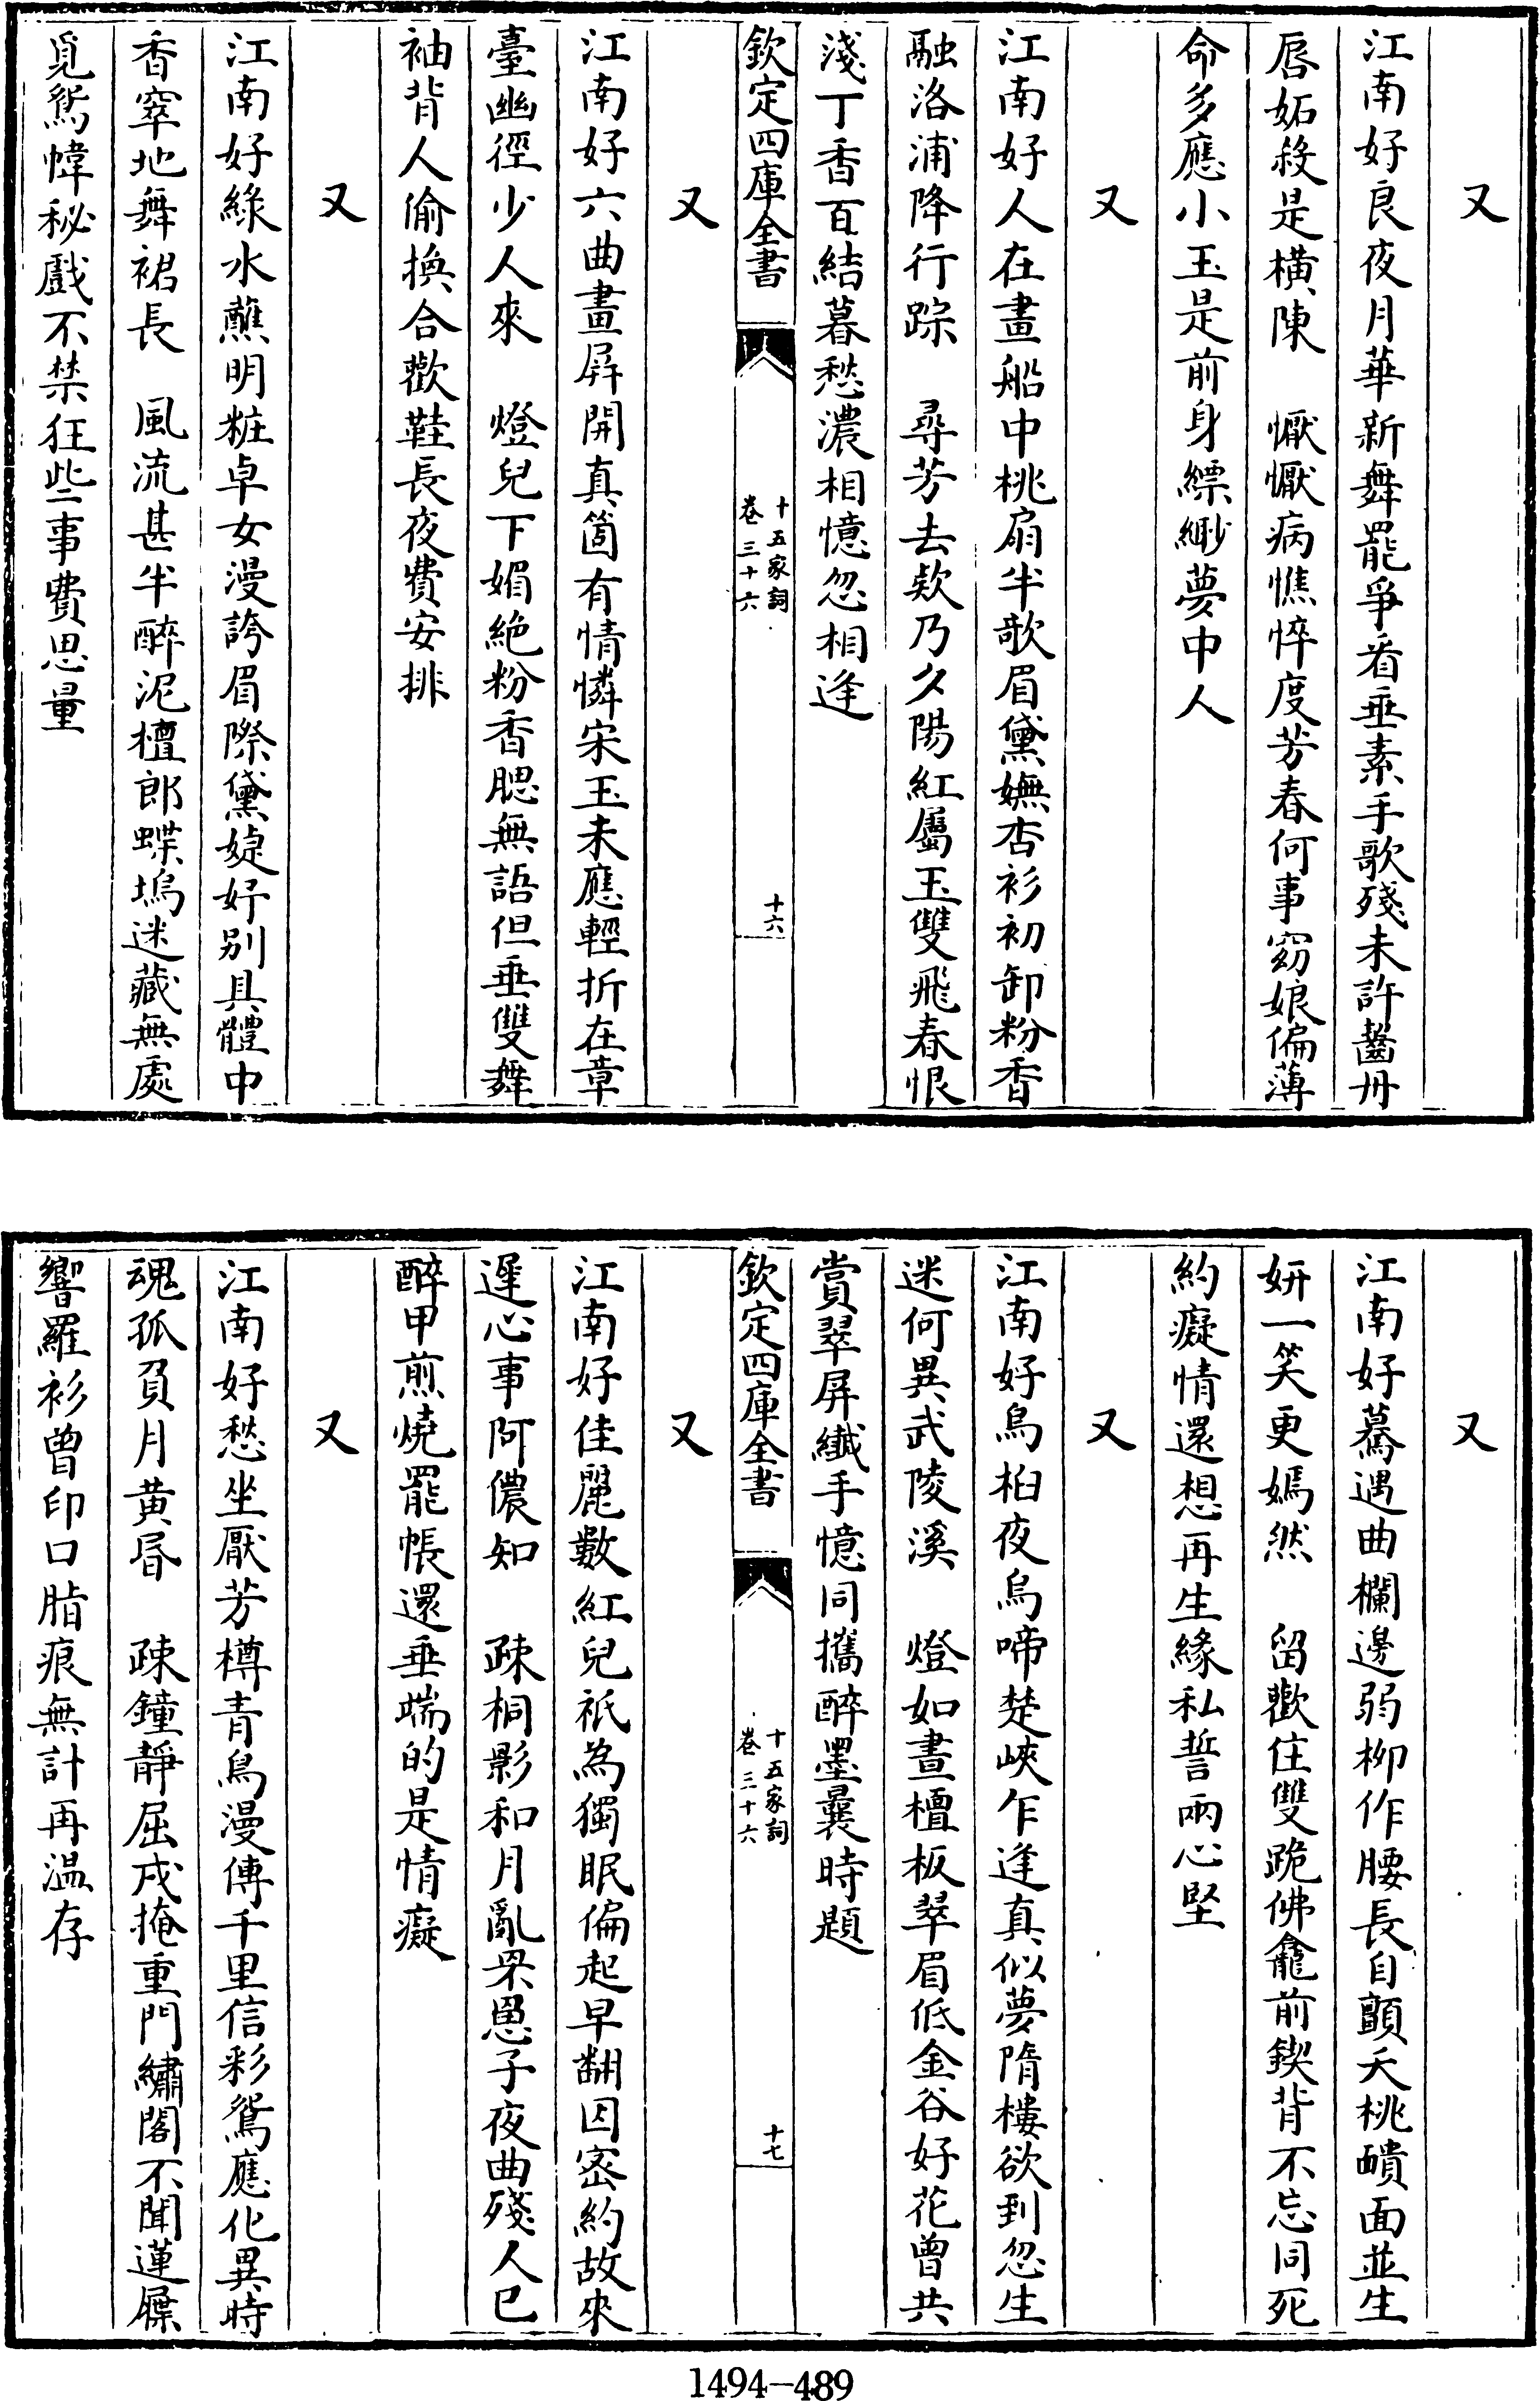 又
江南好良夜月華新舞罷爭看垂素手歌殘未許齧丹
唇妬殺是橫陳　懨懨病憔悴度芳春何事窈娘偏薄
命多應小玉是前身縹緲夢中人
又
江南好人在畫船中桃扇半歌眉黛嫵杏衫初卸粉香
融洛浦降行踪　尋芳去欵乃夕陽紅屬玉雙飛春恨
淺丁香百結暮愁濃相憶忽相逢
欽定四庫全書
十五家詞
卷三十六
十六
又
江南好六曲畫屏開真箇有情憐宋玉未應輕折在章
臺幽徑少人來　燈兒下媚絶粉香腮無語但垂雙舞
袖背人偷換合歡鞋長夜費安排
又
江南好綠水蘸明粧卓女漫誇眉際黛婕妤別具體中
香窣地舞裙長　風流甚半醉泥檀郎蝶塢迷藏無處
覓鴛幃秘戲不禁狂些事費思量
又
江南好驀遇曲欄邊弱柳作腰長自顫夭桃靧面並生
妍一笑更嫣然　留歡住雙跪佛龕前鍥背不忘同死
約癡情還想再生緣私誓兩心堅
又
江南好烏柏夜烏啼楚峽乍逢真似夢隋樓欲到忽生
迷何異武陵溪　燈如晝檀板翠眉低金谷好花曾共
賞翠屏纖手憶同攜醉墨曩時題
欽定四庫全書
十五家詞
卷三十六
十七
又
江南好佳麗數紅兒祇為獨眠偏起早翻因密約故來
遲心事阿儂知　疎桐影和月亂罘罳子夜曲殘人已
醉甲煎燒罷帳還垂端的是情癡
又
江南好愁坐厭芳樽青鳥漫傳千里信彩鴛應化異時
魂孤負月黃昏　疎鐘靜屈戍掩重門繡閣不聞蓮屧
響羅衫曾印口脂痕無計再溫存
1494-489